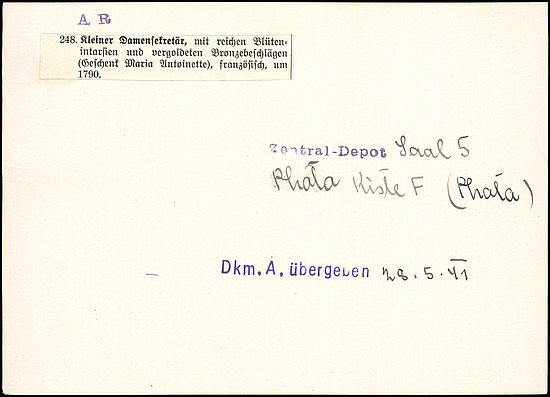 A R
248. Kleiner Damensekretär, mit reichen Blüten-
intarsien und vergoldeten Bronzebeschlägen
(Geschenk Maria Antoinette), französisch, um
1790.
Zentral-Depot Saal 5
Phata Kiste F (Phata)
Dkm. A. übergeben 28. 5. 41